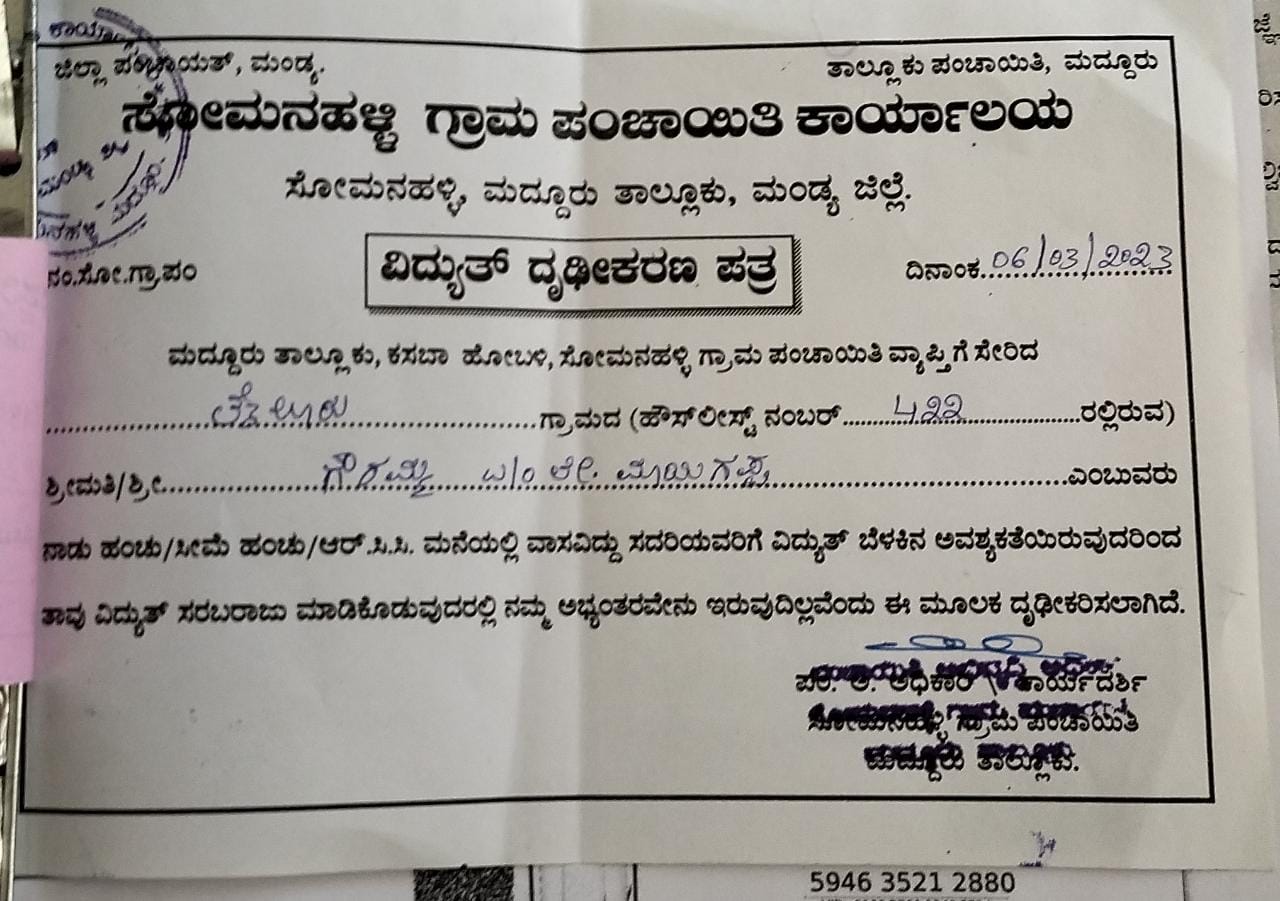 ಜಿಲ್ಲಾ ಪಂಚಾಯತ್, ಮಂಡ್ಯ. ತಾಲ್ಲೂಕು ಪಂಚಾಯಿತಿ, ಮದ್ದೂರು
ಸೋಮನಹಳ್ಳಿ ಗ್ರಾಮ ಪಂಚಾಯಿತಿ ಕಾರ್ಯಾಲಯ
ಸೋಮನಹಳ್ಳಿ, ಮದ್ದೂರು ತಾಲ್ಲೂಕು, ಮಂಡ್ಯ ಜಿಲ್ಲೆ.
ನಂ.ಸೋ.ಗ್ರಾ.ಪಂ ವಿದ್ಯುತ್ ದೃಢೀಕರಣ ಪತ್ರ ದಿನಾಂಕ 06/03/2023
ಮದ್ದೂರು ತಾಲ್ಲೂಕು, ಕಸಬಾ ಹೋಬಳಿ, ಸೋಮನಹಳ್ಳಿ ಗ್ರಾಮ ಪಂಚಾಯಿತಿ ವ್ಯಾಪ್ತಿಗೆ ಸೇರಿದ
ಗ್ರಾಮದ (ಹೌಸ್‌ಲೀಸ್ಟ್ ನಂಬರ್ ೪೨೨ ರಲ್ಲಿರುವ)
ಶ್ರೀಮತಿ/ಶ್ರೀ ಗೌರಮ್ಮ ಎಂಬುವರು
ನಾಡು ಹಂಚು/ಸೀಮೆ ಹಂಚು/ಆರ್.ಸಿ.ಸಿ. ಮನೆಯಲ್ಲಿ ವಾಸವಿದ್ದು ಸದರಿಯವರಿಗೆ ವಿದ್ಯುತ್ ಬೆಳಕಿನ ಅವಶ್ಯಕತೆಯಿರುವುದರಿಂದ
ತಾವು ವಿದ್ಯುತ್ ಸರಬರಾಜು ಮಾಡಿಕೊಡುವುದರಲ್ಲಿ ನಮ್ಮ ಅಭ್ಯಂತರವೇನು ಇರುವುದಿಲ್ಲವೆಂದು ಈ ಮೂಲಕ ದೃಢೀಕರಿಸಲಾಗಿದೆ.
ಪಂ. ಅ. ಅಧಿಕಾರಿ \ ಕಾರ್ಯದರ್ಶಿ
ಸೋಮನಹಳ್ಳಿ ಗ್ರಾಮ ಪಂಚಾಯಿತಿ
ಮದ್ದೂರು ತಾಲ್ಲೂಕು.
5946 3521 2880